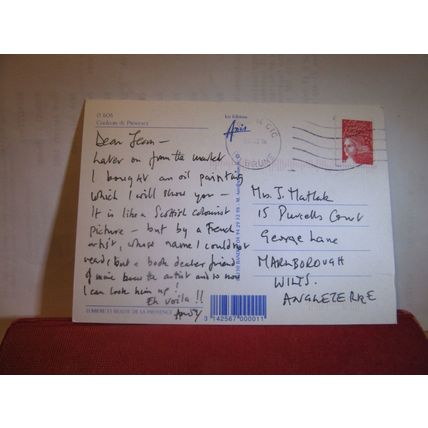 O 604
Couleurs de Provence
Les Editions
Aris
CIC
BRUNE
Dear Jean –
Later on from the market
I bought an oil painting
which I will show you –
It is like a Scottish colourist
picture – but by a French
artist, whose name I couldn't
read, but a book dealer friend
of mine knew the artist and so now
I can look him up!
Eh voila!!
Andy
LUMIERE ET BEAUTE DE LA PROVENCE
3 142567 000011
Mrs. J.
15 Purcells Court
George Lane
MARLBOROUGH
WILTS.
ANGLETERRE